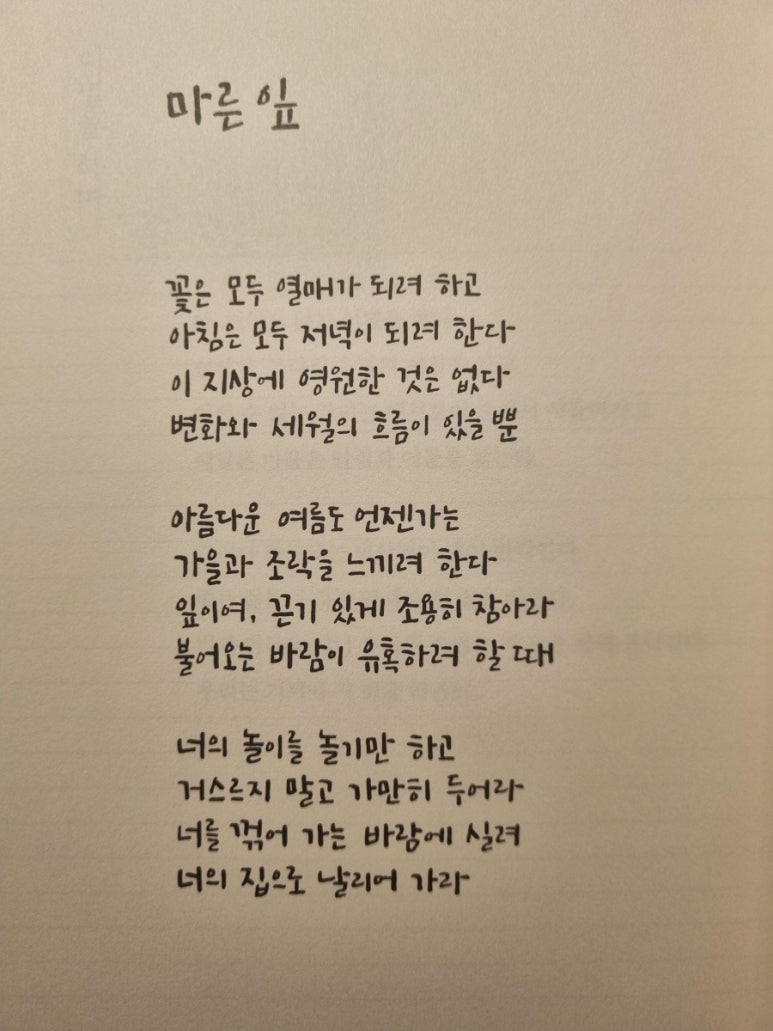 마른 잎
꽃은 모두 열매가 되려 하고
아침은 모두 저녁이 되려 한다
이 지상에 영원한 것은 없다
변화와 세월의 흐름이 있을 뿐
아름다운 여름도 언젠가는
가을과 조락을 느끼려 한다
잎이여, 끈기 있게 조용히 참아라
불어오는 바람이 유혹하려 할 때
너의 놀이를 놀기만 하고
거스르지 말고 가만히 두어라
너를 꺾어 가는 바람에 실려
너의 집으로 날리어 가라